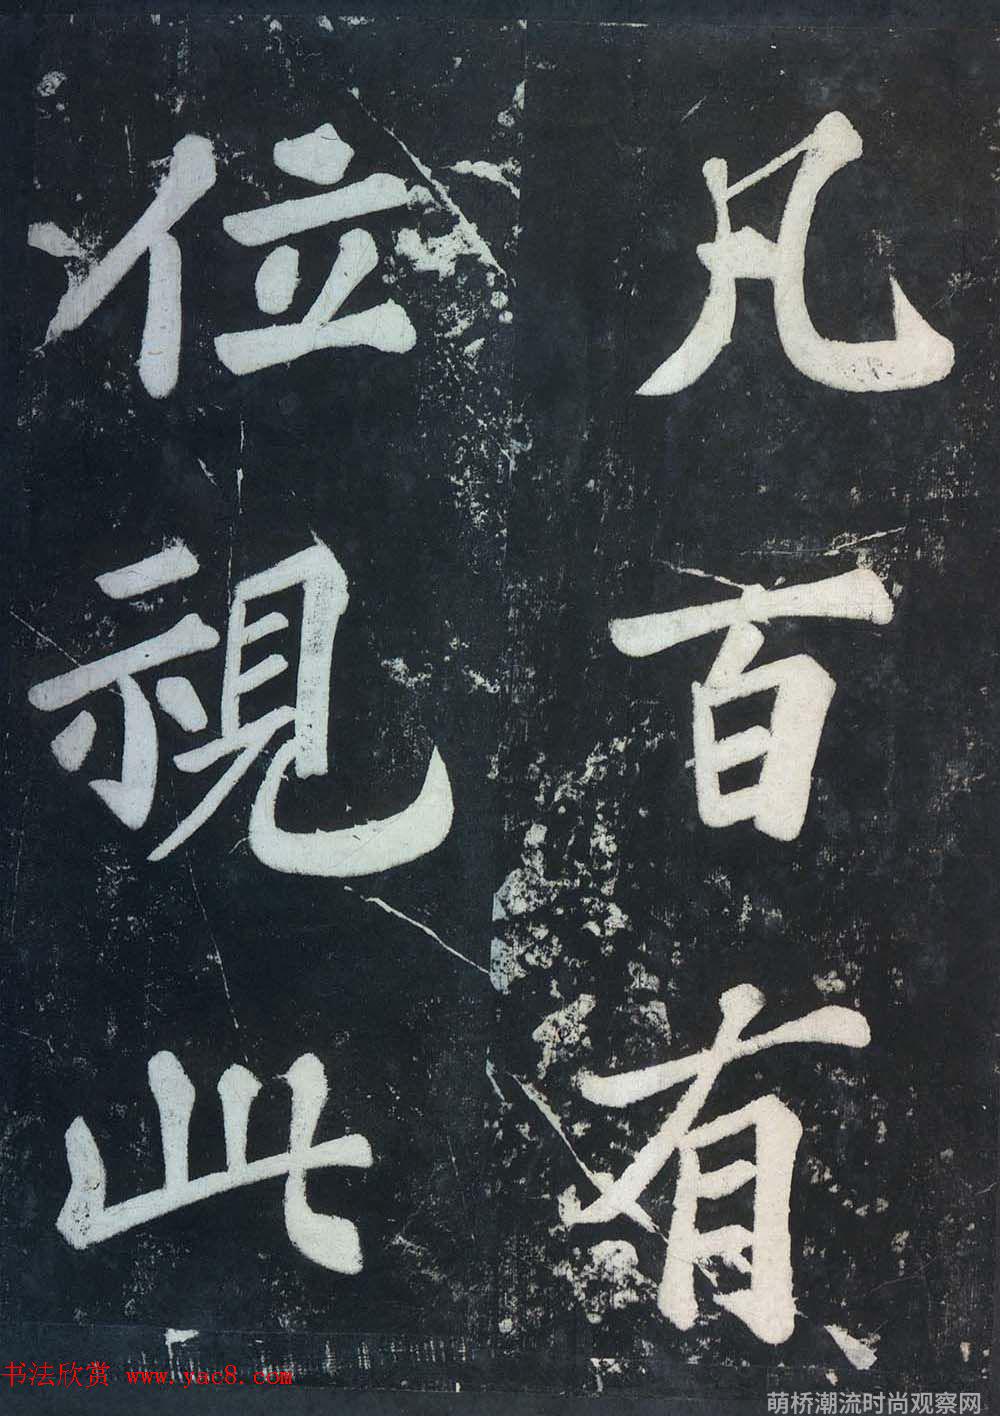 凡百有
位視此
书法欣赏 www.yac8.com
萌桥潮流时尚观察网